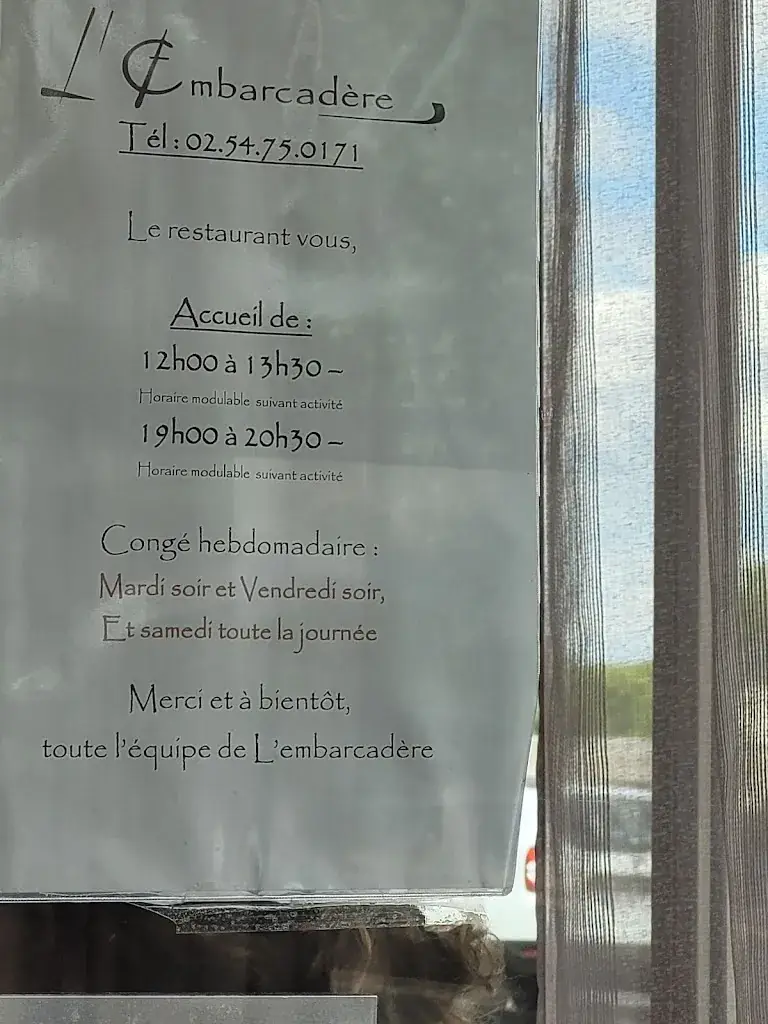 L'Embarcadère
Tél : 02.54.75.0171
Le restaurant vous,
Accueil de :
12h00 à 13h30 –
Horaire modulable suivant activité
19h00 à 20h30 –
Horaire modulable suivant activité
Congé hebdomadaire :
Mardi soir et Vendredi soir,
Et samedi toute la journée
Merci et à bientôt,
toute l'équipe de L'embarcadère